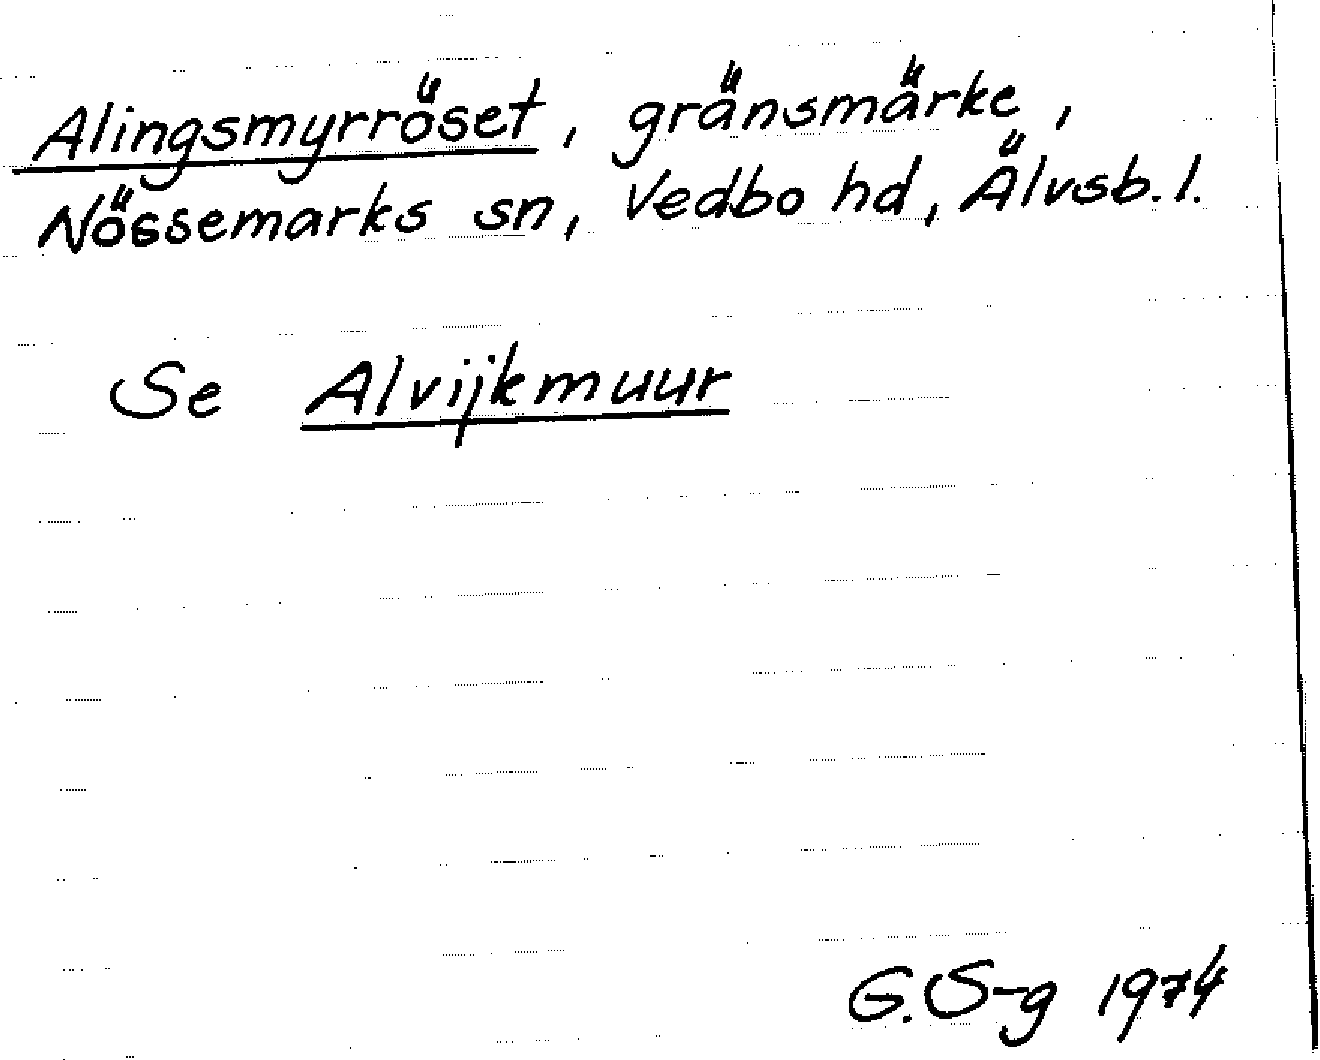 Alingsmyrröset, gränsmärke,
Nössemarks sn, Vedbo hd, Älvsb. l.
Se Alvijkmuur
G. S-g 1974